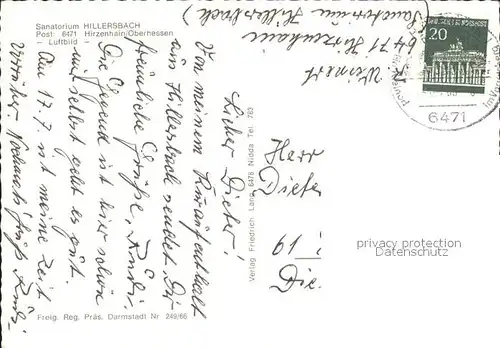 Sanatorium HILLERSBACH
Post: 6471 Hirzenhain/Oberhessen
— Luftbild —
R. Weinert
6471 Hirzenhain
Sanatorium Hillersbach)
20
6471
Lieber Dieter!
Von meinem Kuraufenthalt
aus Hillersbach sendet Dir
freundliche Grüße, Rudi.
Die Gegend ist hier schön
mir selbst geht es gut.
Am 17.7. ist meine Zeit
vorüber. Nochmals Gruß Rudi.
Verlag Friedrich Lang 6478 Nidda Tel. 783
Herr
Dieter
61
Die
privacy protection
Datenschutz
Freig. Reg. Präs. Darmstadt Nr 249/66